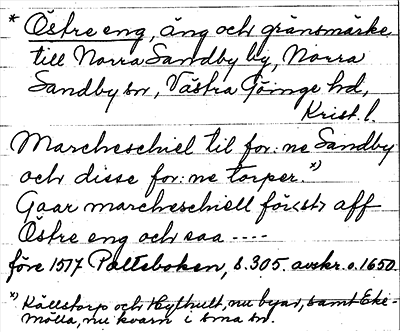 * Östre eng, äng och gränsmärke
till Norra Sandby by, Norra
Sandby sn, Västra Göinge hd,
Krist. l.
Marcheschiel til for:ne Sandby
och disse for:ne torper.*)
Gaar marcheschiell först aff
Östre eng och saa ----
före 1517 Palteboken, s. 305. avskr. o. 1650.
*) Källstorp och Hylhult, nu byar, samt Eke-
mölla, nu kvarn i sma sn.